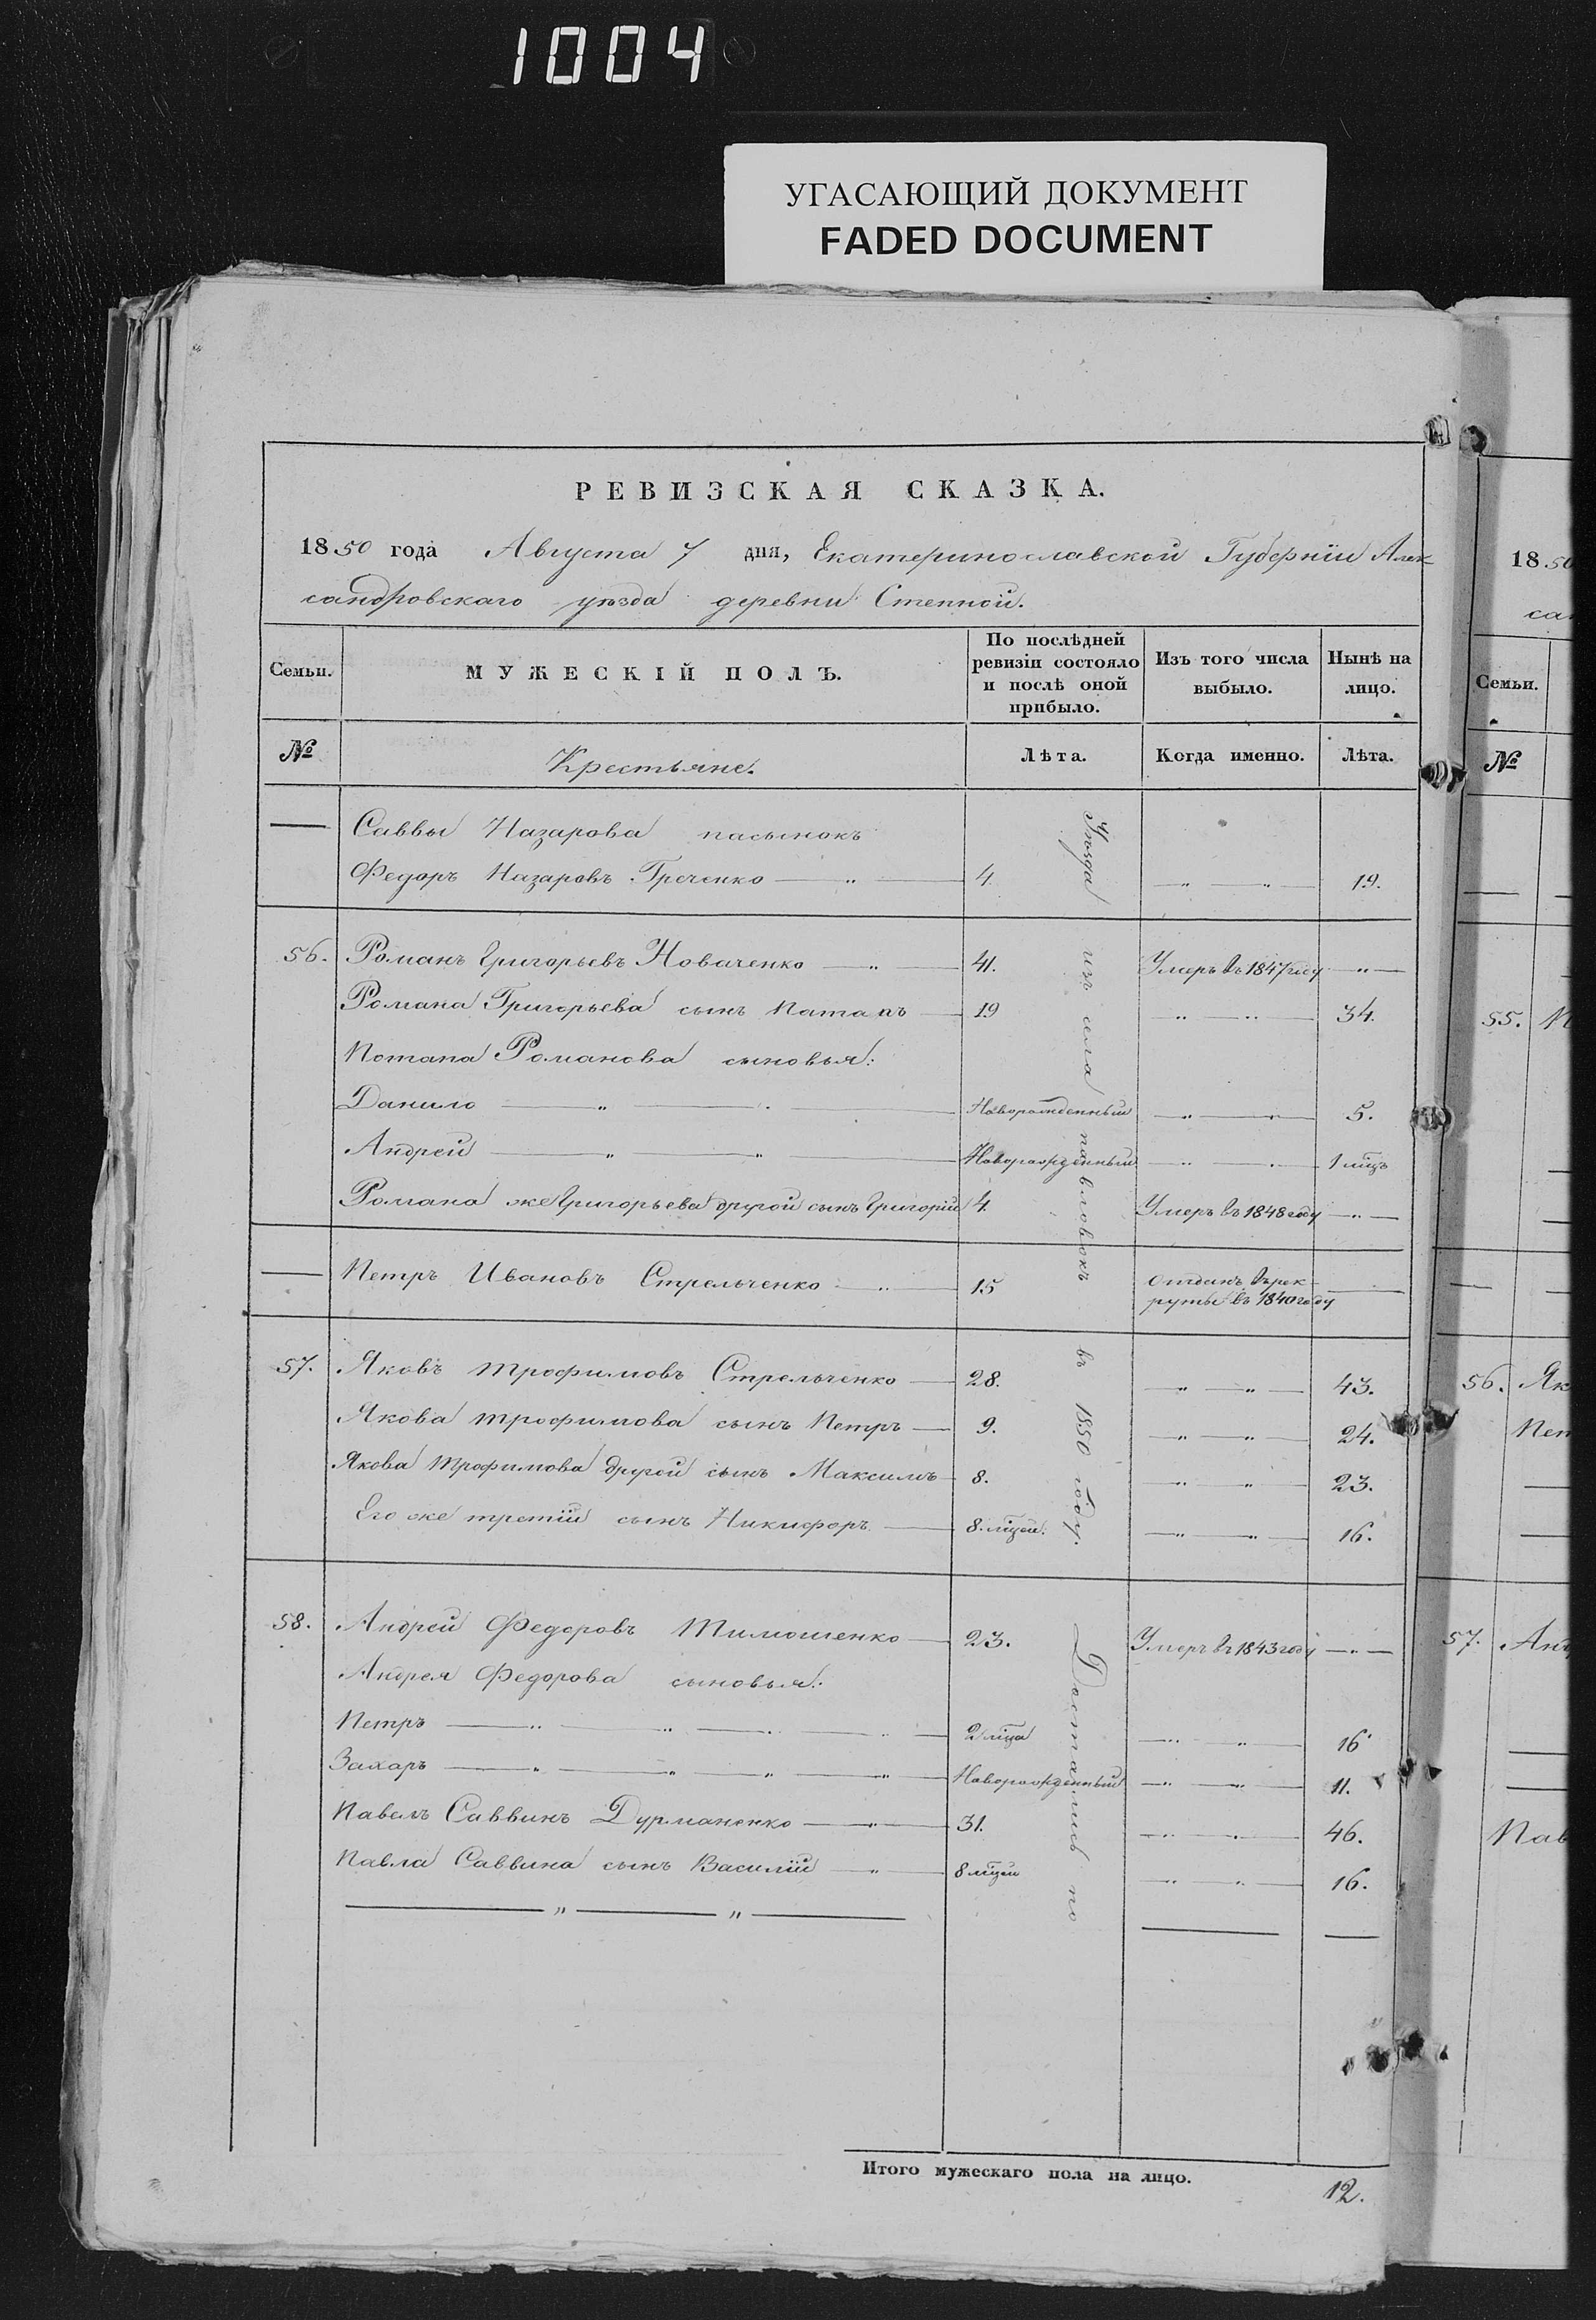 1004
УГАСАЮЩИЙ ДОКУМЕНТ
FADED DOCUMENT
РЕВИЗСКАЯ СКАЗКА.
1850 года Августа 7 дня, Екатеринославской Губернiи Алек-
сандровскаго уѣзда деревни Степной.
Семьи. МУЖЕСКIЙ ПОЛЪ. По послѣдней ревизiи состояло и послѣ оной прибыло. Изъ того числа выбыло. Нынѣ на лицо.
№ Крестьяне. Лѣта. Когда именно. Лѣта.
Саввы Назарова пасынокъ
Федоръ Назаровъ Греченко — „ — 4 — „ — „ — 19.
56. Романъ Григорьевъ Новаченко — „ — 41. Умеръ въ 1847 году — „ —
Романа Григорьева сынъ Патапъ — 19 „ — „ — 34.
Потапа Романова сыновья:
Данило — „ — Новорожденный — „ — „ — 5.
Андрей — „ — „ — Новорожденный — „ — 1 мцъ
Романа же Григорьева другой сынъ Григорiй 4. Умеръ въ 1848 году — „ —
— Петръ Ивановъ Стрельченко — „ — 15 отданъ въ рек-
руты въ 1840 году
57. Яковъ Трофимовъ Стрельченко — 28. — „ — „ — 43.
Якова Трофимова сынъ Петръ — 9. — „ — „ — 24.
Якова Трофимова другой сынъ Максимъ — 8. — „ — „ — 23.
Его же третiй сынъ Никифоръ — 8. мцей. — „ — „ — 16.
58. Андрей Федоровъ Тимошенко — 23. Умеръ въ 1843 году — „ —
Андрея Федорова сыновья:
Петръ — „ — „ — 2 мца — „ — „ — 16
Захаръ — „ — „ — „ — „ — Новорожденный — „ — „ — 11.
Павелъ Саввинъ Дурманенко — „ — 31. — „ — „ — 46.
Павла Саввина сынъ Василiй — „ — 8 мцей — „ — „ — 16.
— „ — „ —
Достались по
уѣзда изъ села Павловокъ въ 1850 году.
Итого мужескаго пола на лицо. 12.
1850
сан
Семьи.
№
55. П
56. Як
Пет
57. Анд
Пав